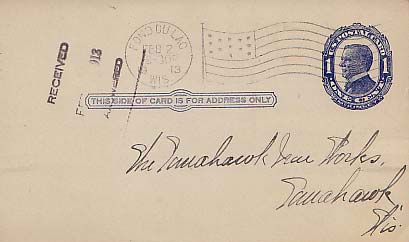 RECEIVED
ANSWERED
FOND DU LAC
FEB 2
13
WIS.
U.S. POSTAL CARD
1 1
ONE CENT
THIS SIDE OF CARD IS FOR ADDRESS ONLY
The Tomahawk Iron Works,
Tomahawk
Wis.